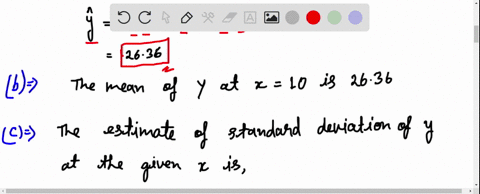 ŷ =
= 26.36
(b)⇒ The mean of y at x = 10 is 26.36
(c)⇒ The estimate of standard deviation of y
at the given x is,